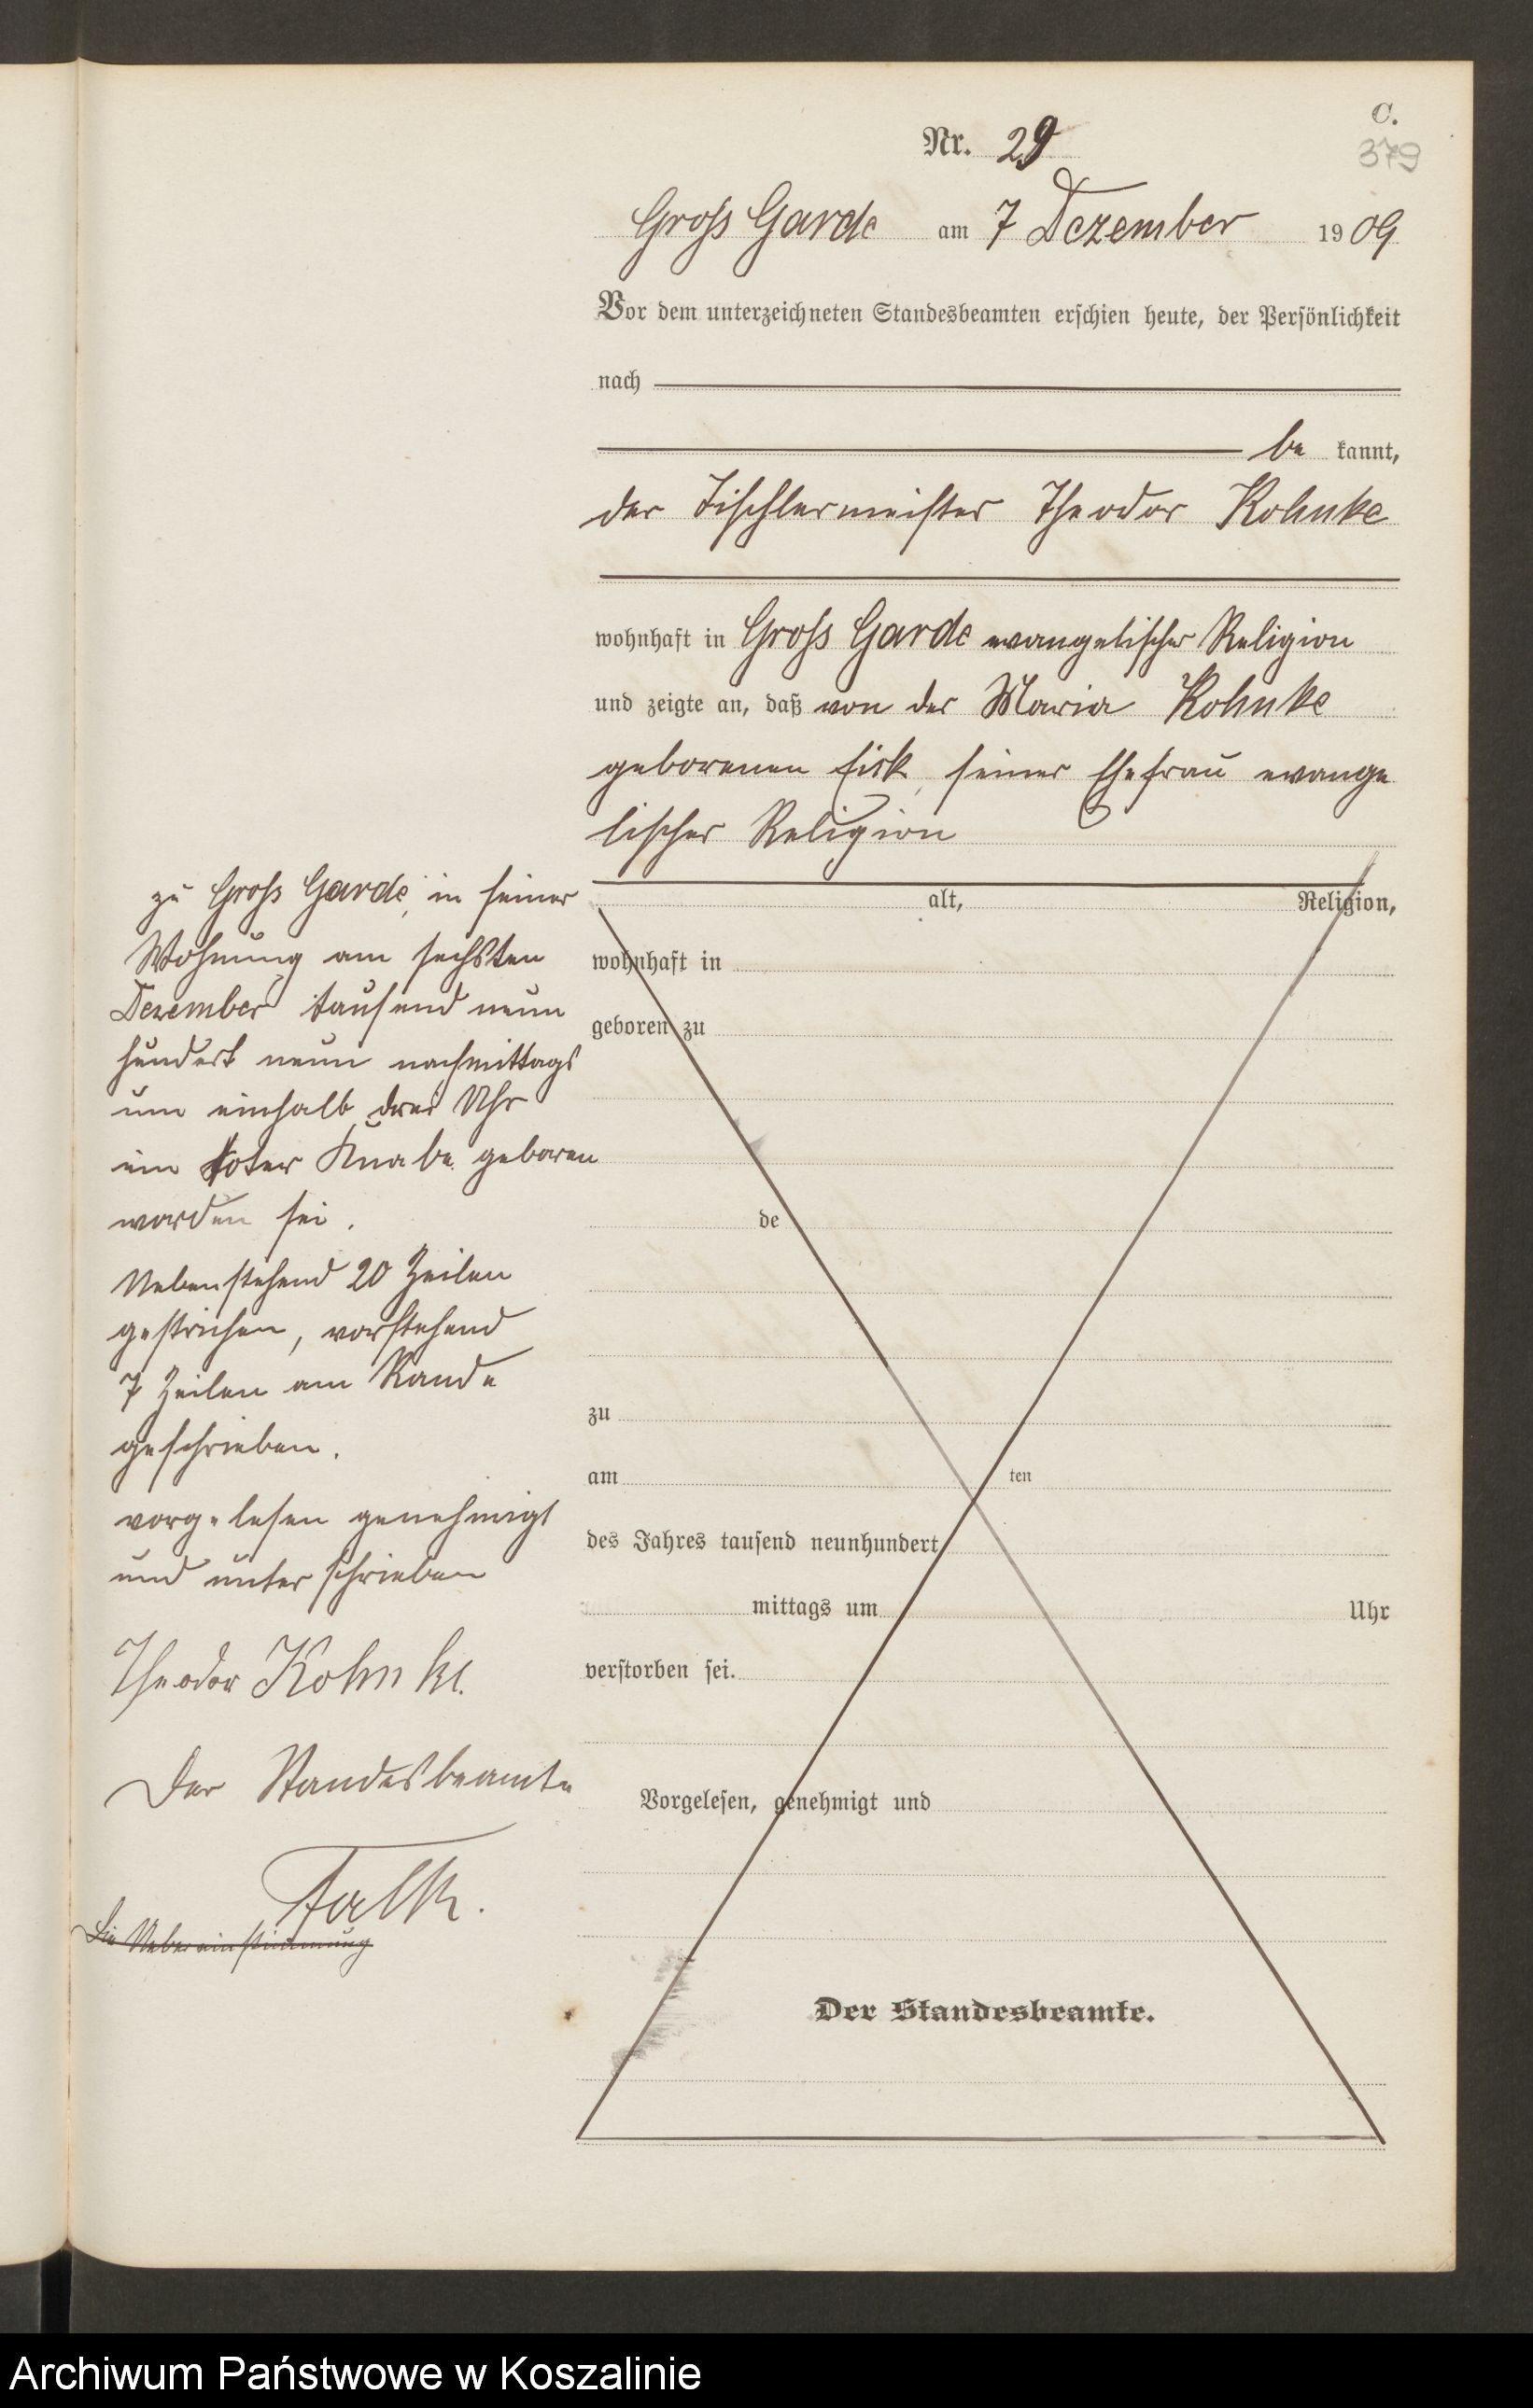 C.
379
Nr. 29
Groß Garde am 7 Dezember 1909
Vor dem unterzeichneten Standesbeamten erschien heute, der Persönlichkeit
nach
be kannt,
der Tischlermeister Theodor Kohnke
wohnhaft in Groß Garde evangelischer Religion
und zeigte an, daß von der Maria Kohnke
geborenen seiner Ehefrau evange
lischer Religion
zu Groß Garde, in seiner
Wohnung am sechsten
Dezember tausend neun
hundert neun nachmittags
um einhalb drei Uhr
ein toter Knabe geboren
worden sei.
Nebenstehend 20 Zeilen
gestrichen, vorstehend
7 Zeilen am Rande
geschrieben.
vorgelesen genehmigt
und unterschrieben
Theodor Kohnke.
Der Standesbeamte
Falk.
Die Uebereinstimmung
alt, Religion,
wohnhaft in
geboren zu
de
zu
am ten
des Jahres tausend neunhundert
mittags um Uhr
verstorben sei.
Vorgelesen, genehmigt und
Der Standesbeamte.
Archiwum Państwowe w Koszalinie